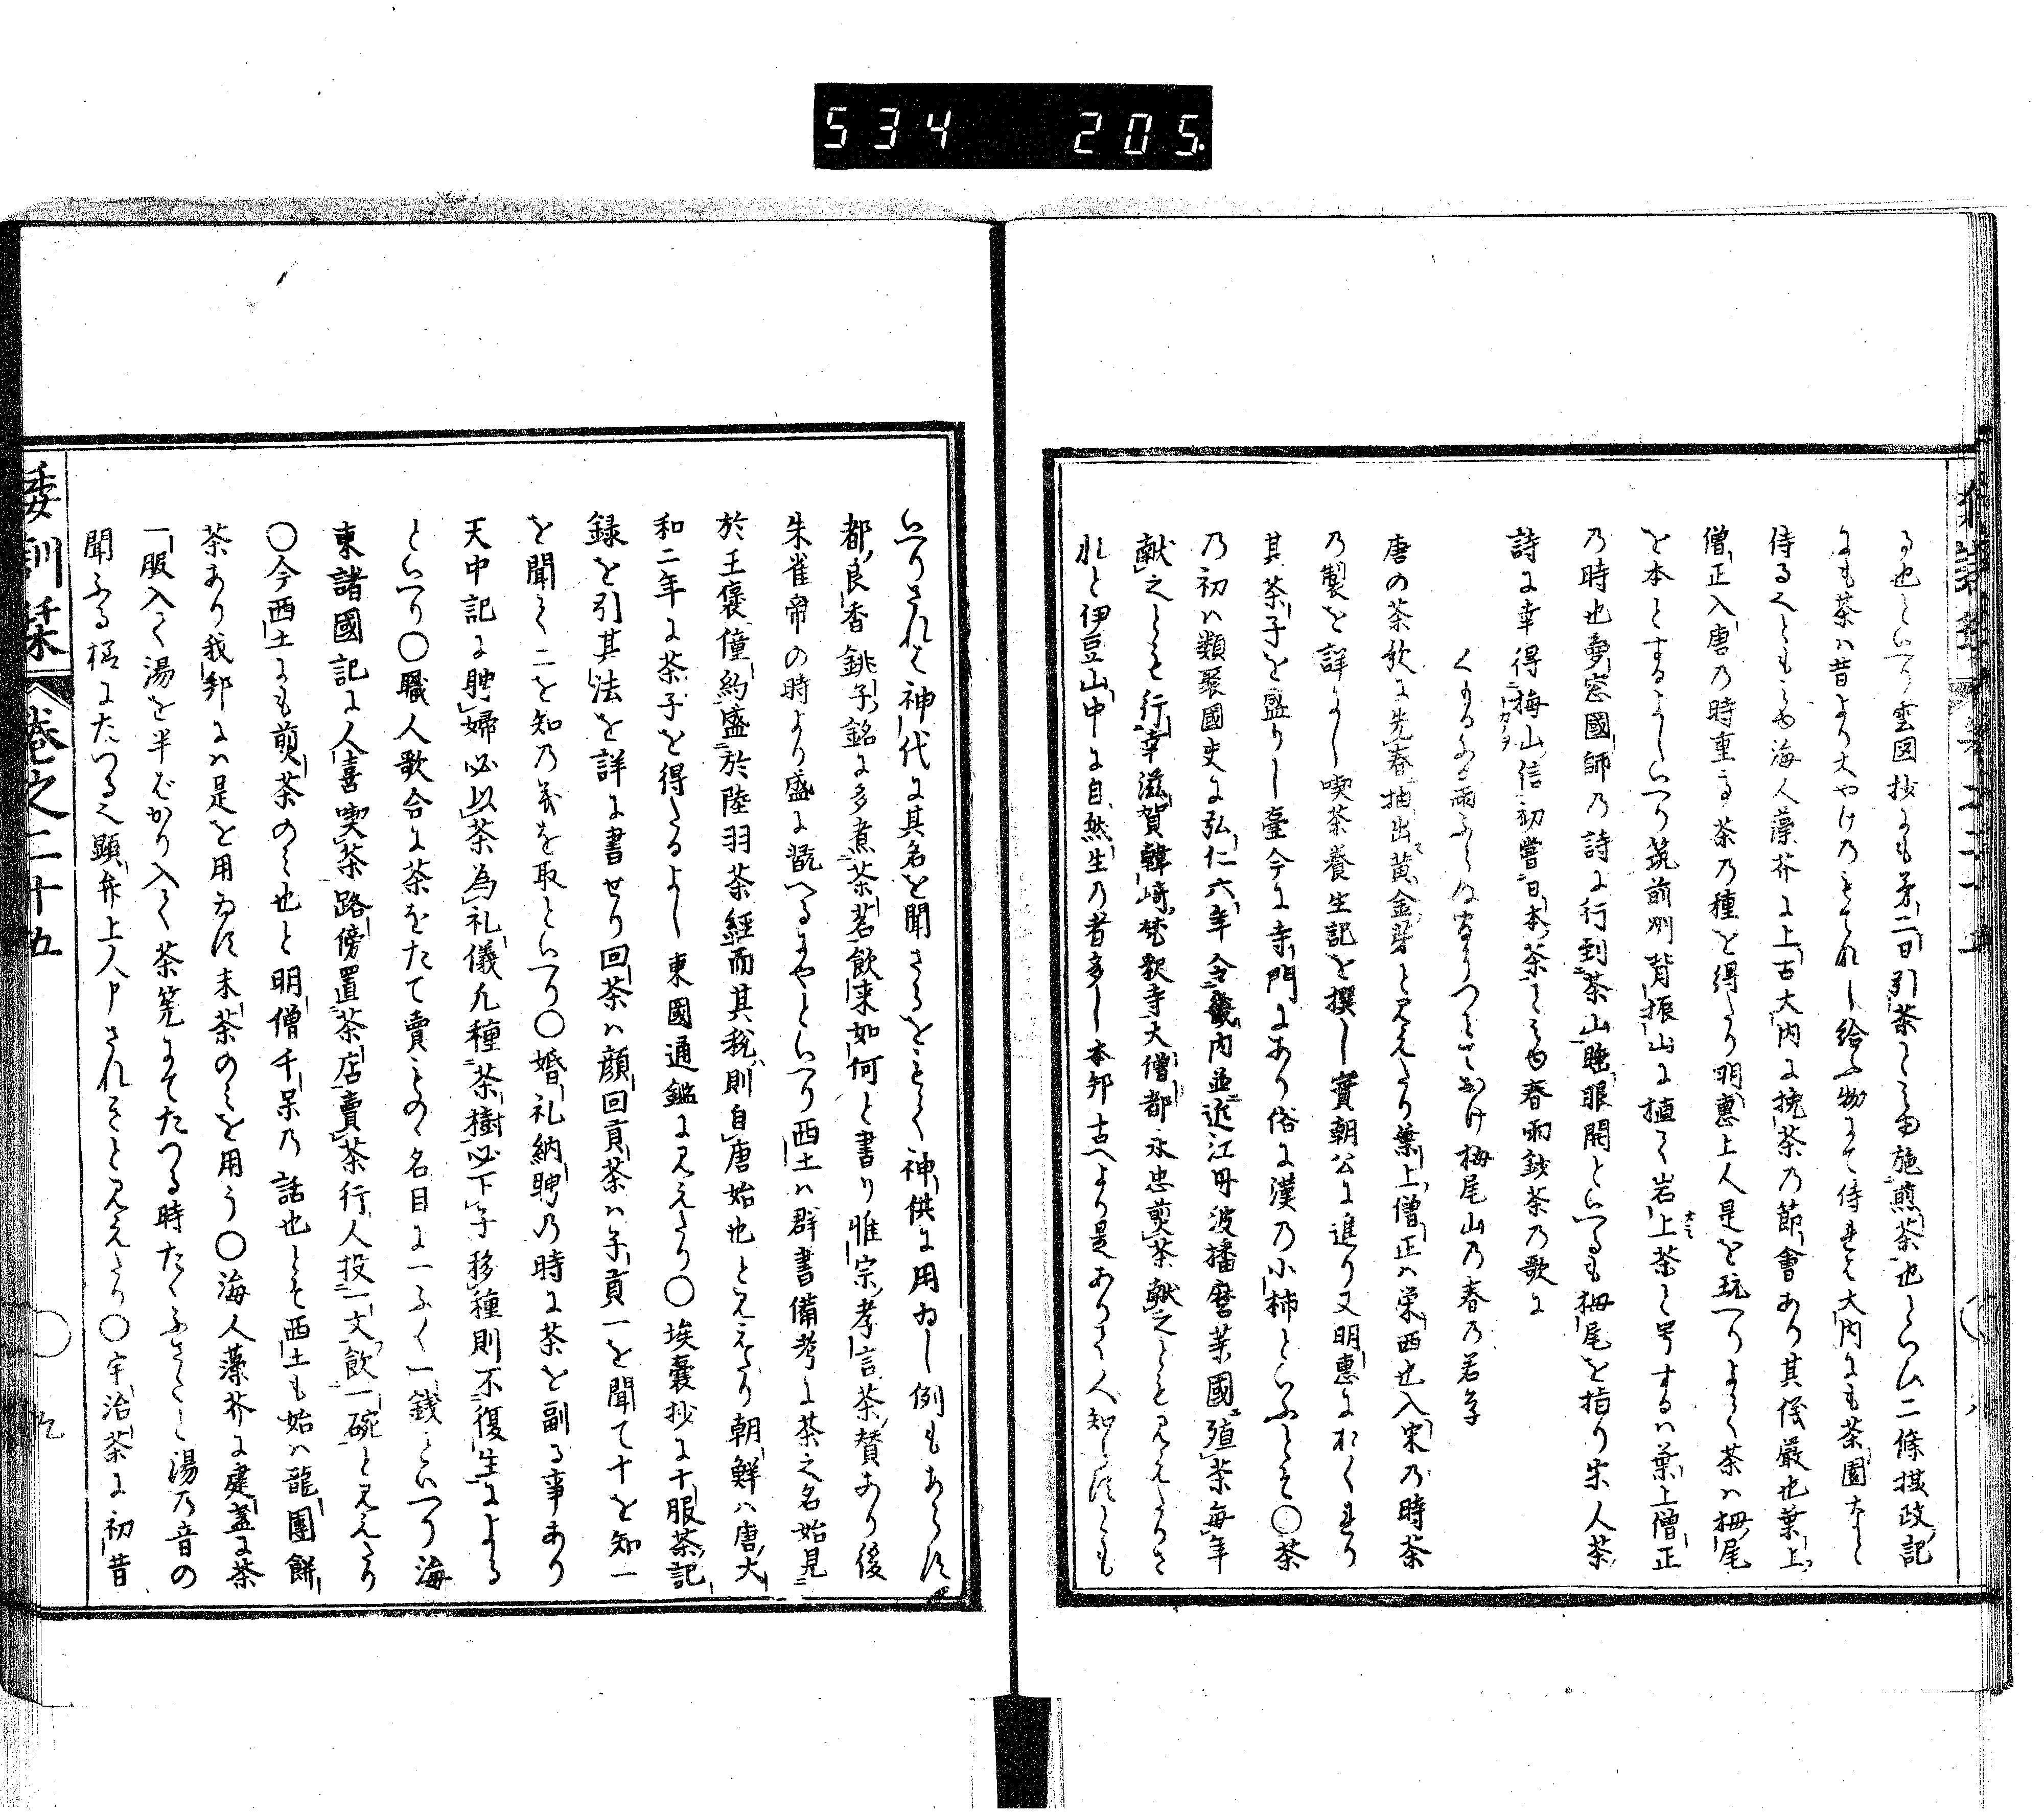 534 205.
る也といへり雲図抄にも第二日引茶とみゆ施煎茶也といへり二條摂政記
にも茶ハ昔より大やけのもてなし給ふ物にて侍れは大内にも茶園なと
侍るへしとみゆ海人藻芥に上古大内に挽茶乃節會あり其儀嚴也葉上
僧正入唐乃時重る茶乃種を得たり明惠上人是を玩へりよりて茶ハ栂尾
を本とするよしいへり筑前州背振山に植て岩上茶と号するハ葉上僧正
乃時也夢窓國師乃詩に行到茶山睡眼開といへるも栂尾を指り宋人茶
詩に幸得梅山信初嘗日本茶とみゆ春雨鈔茶乃歌に
唐の茶歌に先春抽出黄金芽と見えたり葉上僧正ハ栄西也入宋乃時茶
乃製を詳よし喫茶養生記を撰し實朝公に進り又明惠におくれり
其茶子を盛りし臺今に寺門にあり俗に漢乃小柿といふとそ〇茶
乃初ハ類聚國史に弘仁六年令畿内並近江丹波播磨等國殖茶毎年
献之とも行幸滋賀韓崎梵釈寺大僧都永忠煎茶献之とも見えたりさ
れと伊豆山中に自然生乃者多し本邦古へより是ありて人知らすとも
いへりされと神代に其名を聞さるをもて神供に用ゐし例もあらす
都良香銚子銘に多煮茶茗飲来如何と書り惟宗孝言茶賛あり後
朱雀帝の時より盛に翫へるにやといへり西土ハ群書備考に茶之名始見
於王褒僮約盛於陸羽茶經而其税則自唐始也とみえたり朝鮮ハ唐大
和二年に茶子を得たるよし東國通鑑に見えたり〇埃嚢抄に十服茶記
録を引其法を詳に書せり回茶ハ顔回貢茶ハ子貢一を聞て十を知一
を聞て二を知乃義を取といへり〇婚礼納聘乃時に茶を副る事あり
天中記に聘婦必以茶為礼儀凡種茶樹必下子移種則不復生による
といへり〇職人歌合に茶をたて賣もの丶名目に一ふく一銭といへり海
東諸國記に人喜喫茶路傍置茶店賣茶行人投一文飲一碗と見えたり
〇今西土にも煎茶のミ也と明僧千呆乃話也とそ西土も始ハ龍團餅
茶あり我邦にハ是を用ゐす末茶のミを用う〇海人藻芥に建盞に茶
一服入て湯を半ばかり入て茶筅にてたつる時たくふさ〳〵と湯乃音の
聞ふる様にたつる之顕弁上人申されきと見えたり〇宇治茶に初昔
倭訓栞 巻之二十五 〇 九